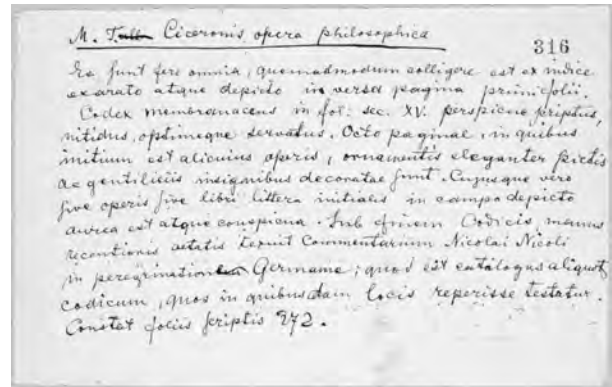 M. Tull. Ciceronis opera philosophica
316
Ea sunt fere omnia, quemadmodum colligere est ex indice
exarato atque depicto in versa pagina primi folii.
Codex membranaceus in fol: sec. XV. perspicue scriptus,
nitidus, optimeque servatus. Octo paginae, in quibus
initium est alicuius operis, ornamentis eleganter pictis
ac gentiliciis insignibus decoratae sunt. Cujusque vero
sive operis sive libri littera initialis in campo depicto
aurea est atque conspicua. Sub finem Codicis manus
recentioris aetatis texuit Commentarium Nicolai Nicoli
in peregrinatione Germame; quod est catalogus aliquot
codicum, quos in quibusdam locis reperisse testatur.
Constat foliis scriptis 272.